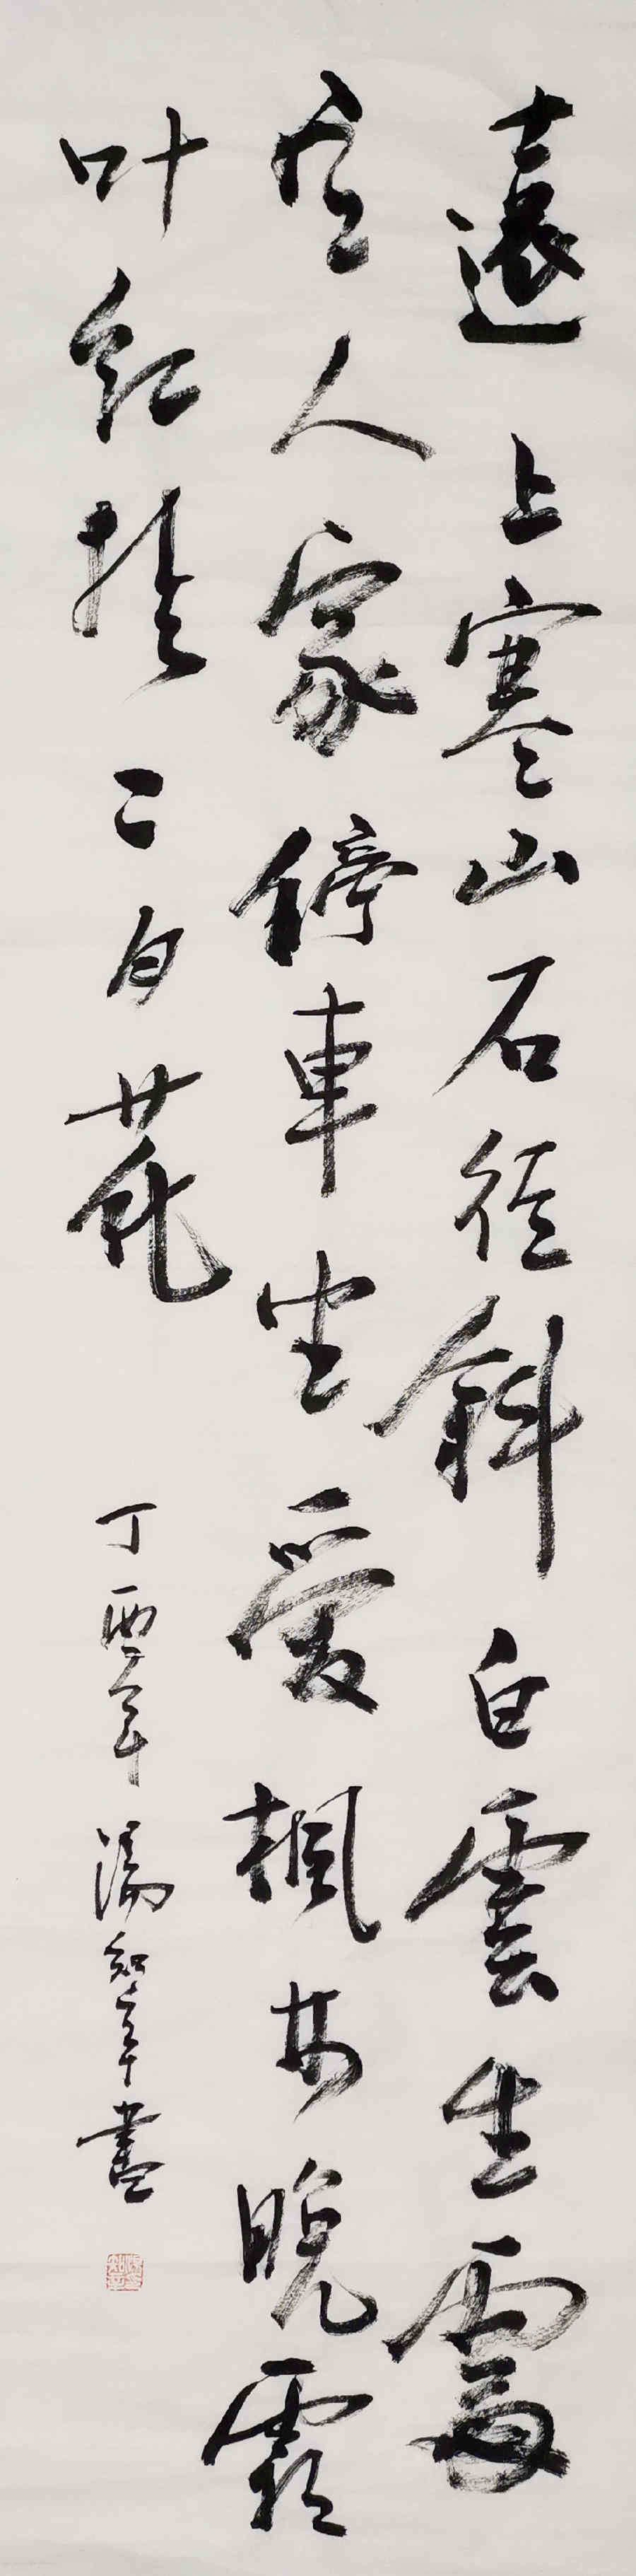 遠上寒山石徑斜白雲生處
有人家停車坐愛楓林晚霜
叶紅於二月花
丁酉年 知章書